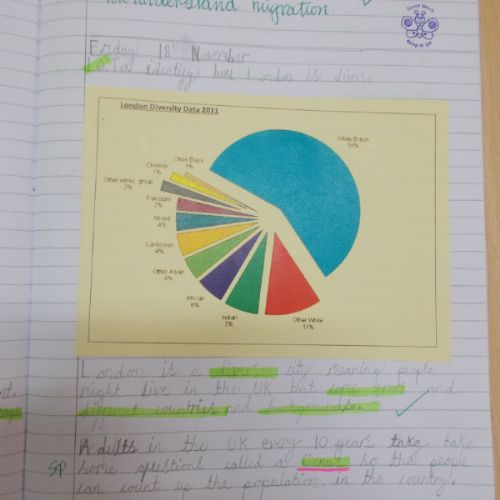 understand migration.
Good Work
Keep It Up
Friday 18th November
L.O. To identify how London is diverse
London Diversity Data 2011
White British
Other Black
Chinese
1%
Other ethnic group
Pakistani
Mixed
4%
Caribbean
4%
Other Asian
African
Indian
7%
Other White
11%
London is a diverse city meaning people
might live in the UK but come from and
different countries and backgrounds.
Adults in the UK every 10 years take take
SP some questions called a so the people
can count us the population, in the country.